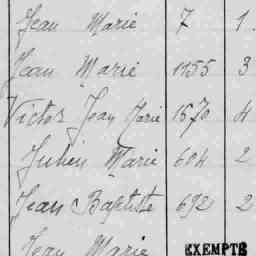 Jean Marie 7 1.
Jean Marie 1155 3
Victor Jean Marie 1570 4
Julien Marie 604 2
Jean Baptiste 692 2
Jean Marie EXEMPTS